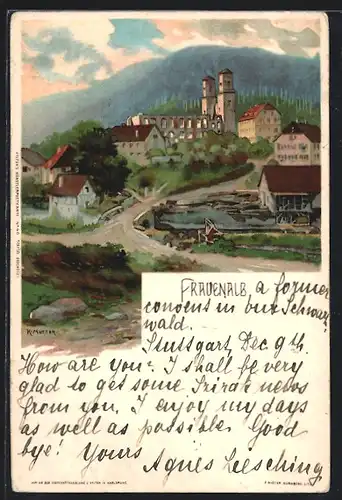 FRAUENALB, a former
convent in our Schwarz
wald.
Stuttgart, Dec 9th.
How are you? I shall be very
glad to get some Private news
from you. I enjoy my days
as well as possible. Good
bye! Yours
Agnes Leesching
K. Mutter